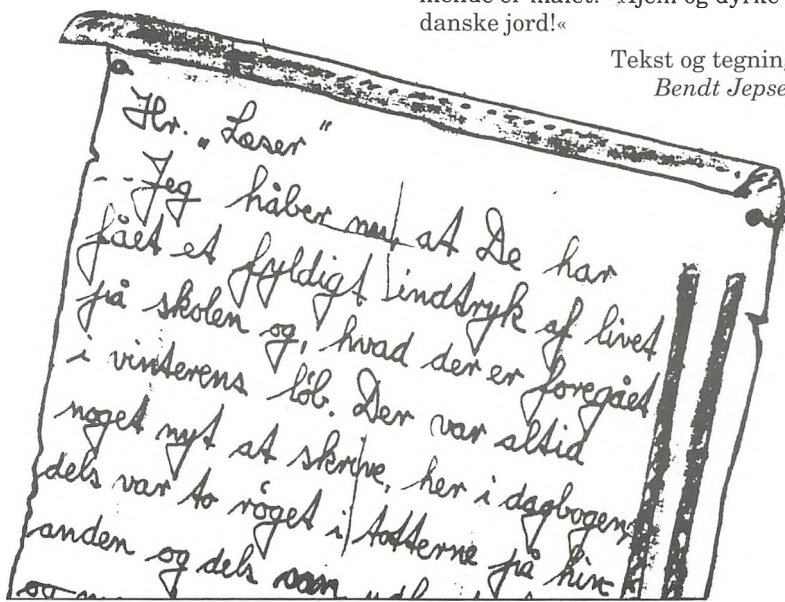 danske jord!«
Tekst og tegning
Bendt Jepse
Hr. „Læser"
--Jeg håber nu, at De har
fået et fyldigt indtryk af livet
på skolen og, hvad der er foregået
i vinterens løb. Der var altid
noget nyt at skrive, her i dagbogen,
dels var to røget i totterne på hin
anden og dels